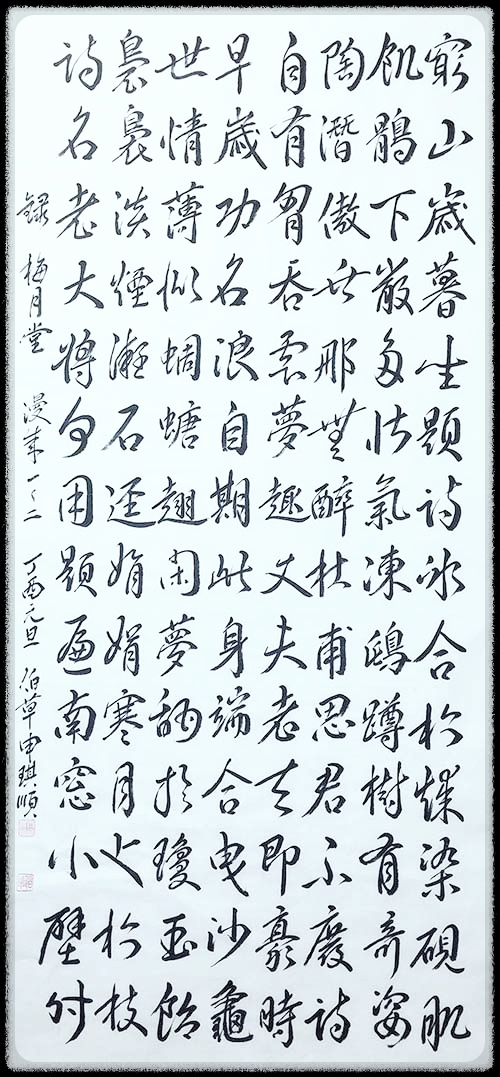 窮山歲暮坐題詩氷合松煤染硯肌
飢鶻下巖多壯氣凍鴟蹲樹有奇姿
陶潛傲世那無醉杜甫思君不廢詩
自有胷吞雲夢趣丈夫老去即豪時
早歲功名浪自期此身端合曳沙龜
世情薄似蜩螗翅閑夢酣於瓊玉飴
裊裊淡煙凝石逕娟娟寒月上松枝
詩名老大將何用題遍南窓小壁付
錄 梅月堂 漫成一、二 丁酉元旦 伯草申琪順